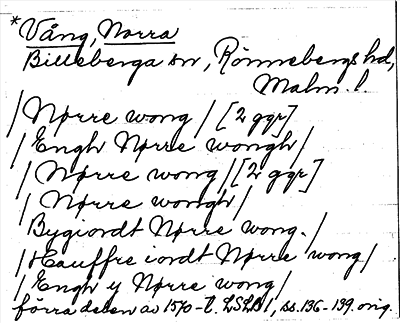 * Vång, Norra
Billeberga sn, Rönnebergs hd,
Malm. l.
/ Nørre wong / [2 ggr]
/ Engh Nørre wongh /
/ Nørre wong / [2 ggr]
/ Nørre wongh /
Bygiordt Nørre wong. /
/ Hauffre iordt Nørre wong /
/ Engh y Nørre wong /
förra delen av 1570-t. LSLB 1, ss. 136-139. orig.